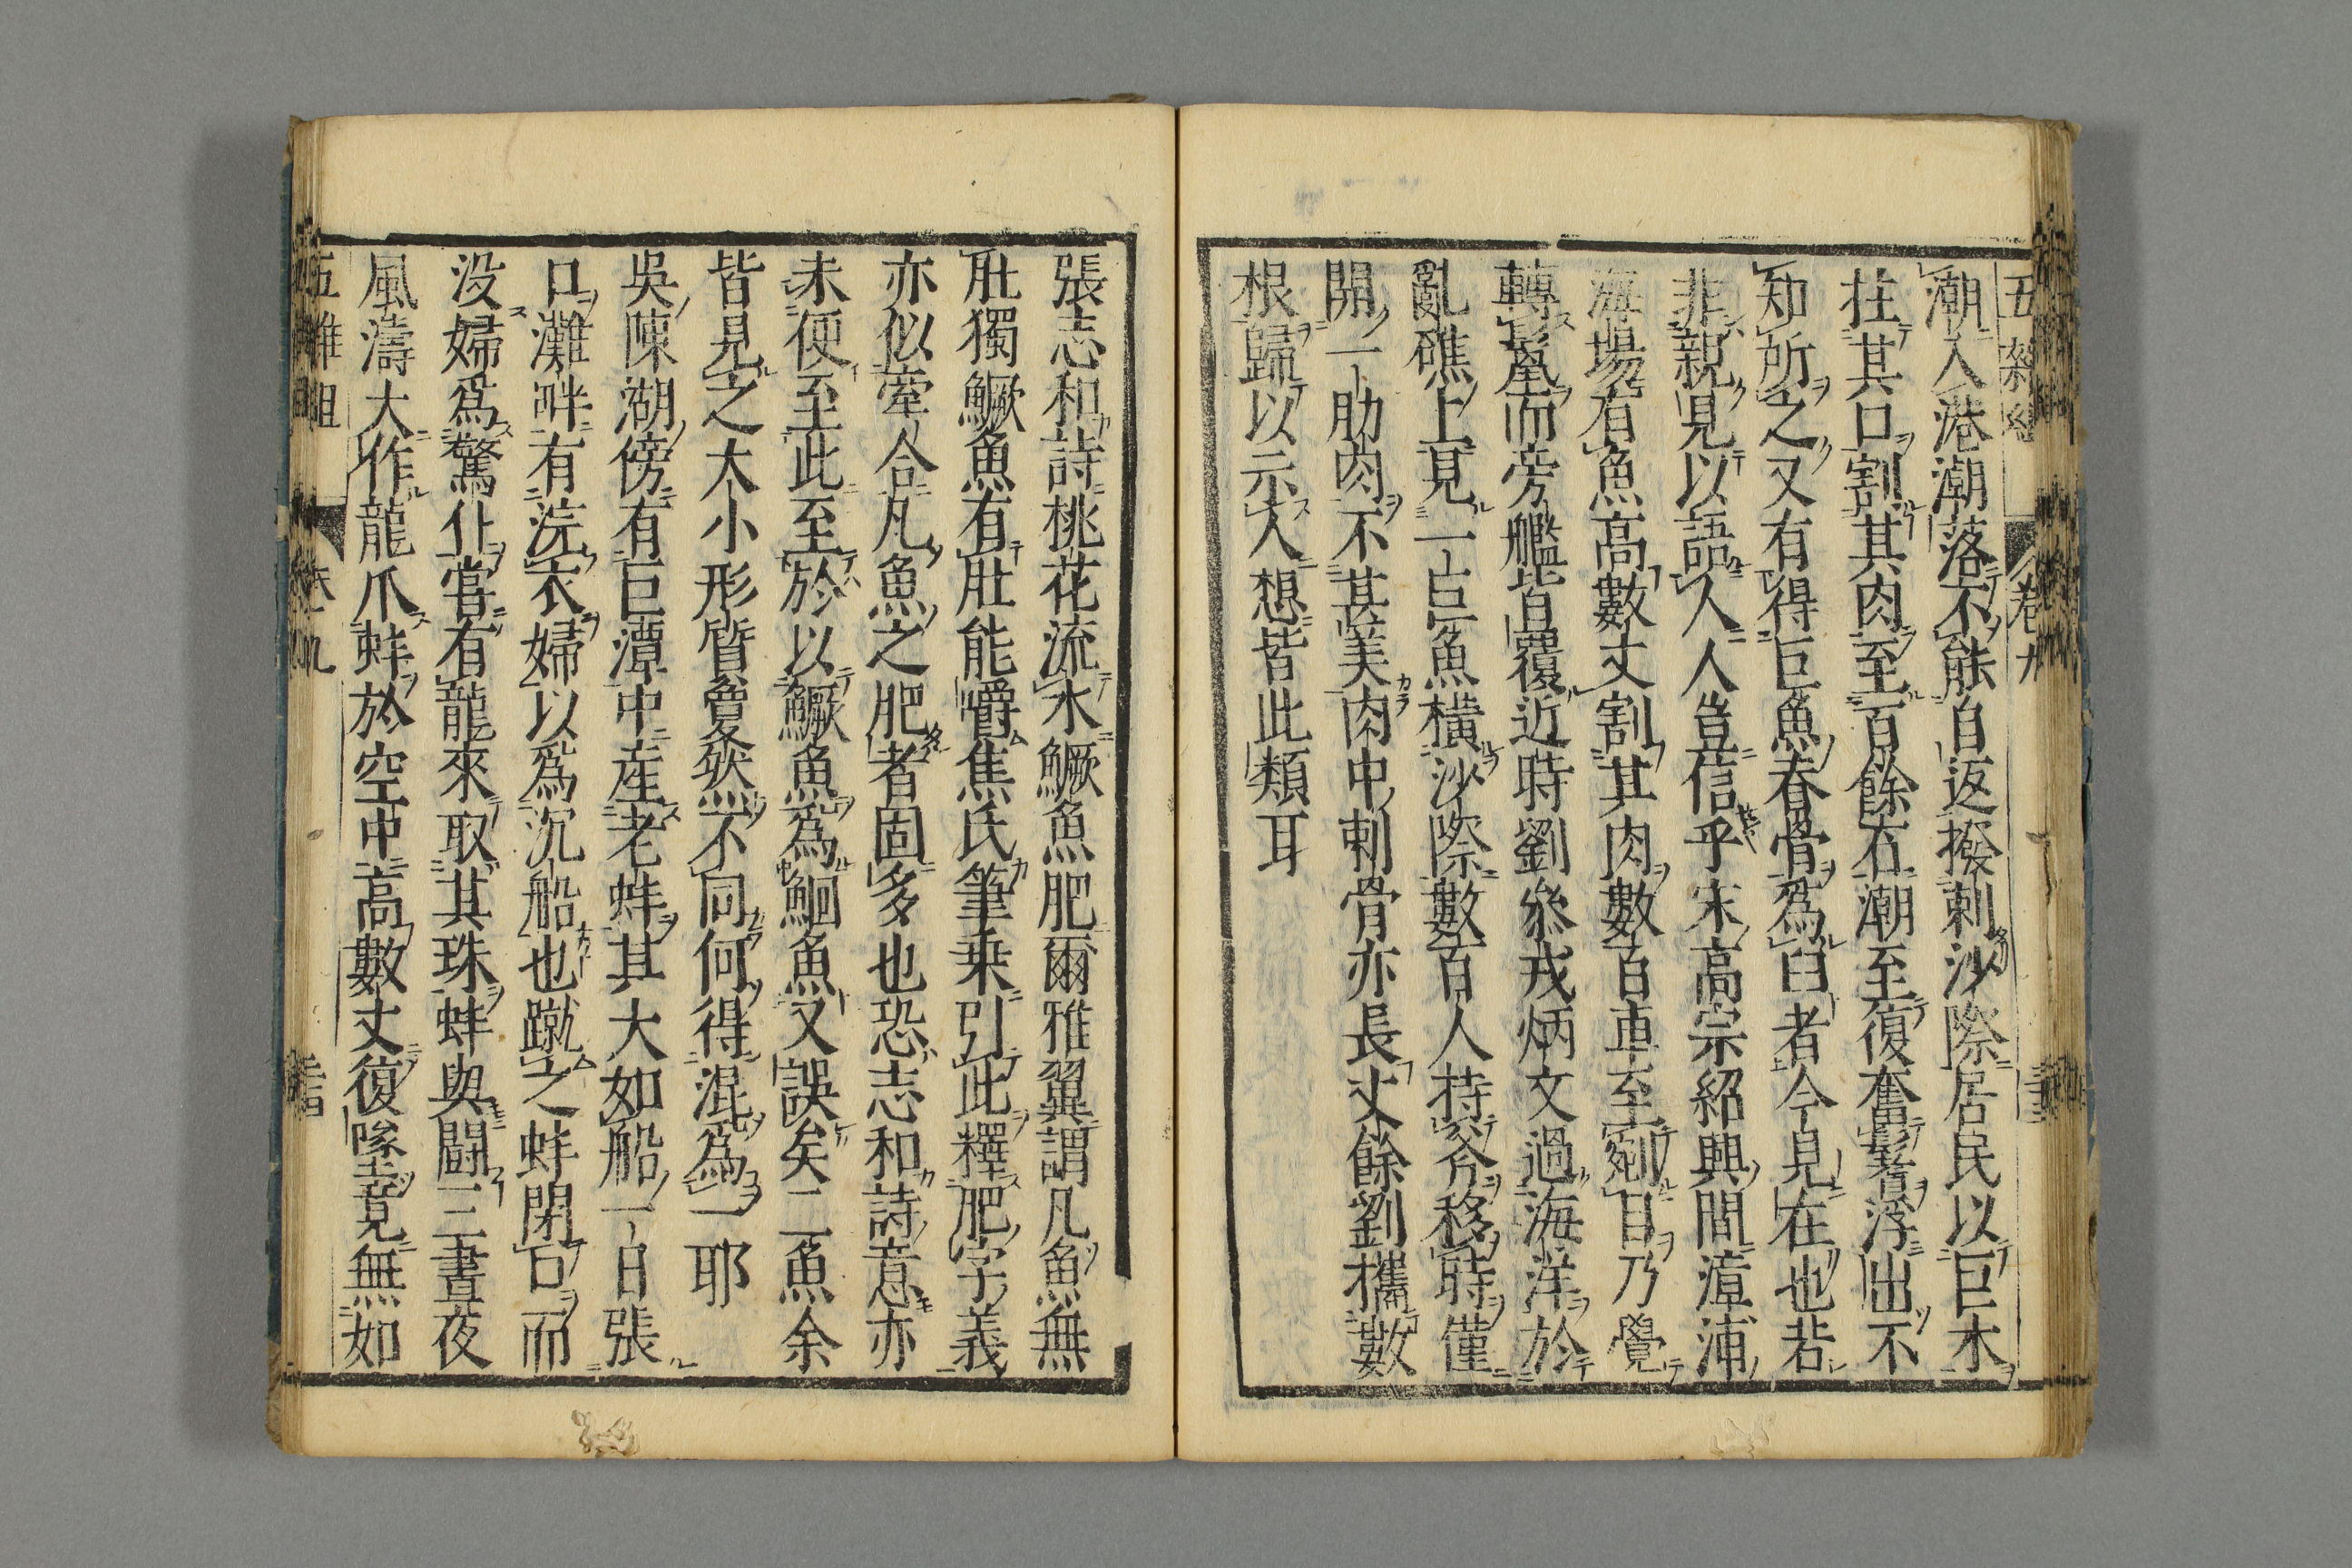 潮入港潮落不能自返撥剌沙際居民以巨木
拄其口割其肉至百餘石潮至復奮鬐浮出不
知所之又有得巨魚脊骨爲臼者今見在也若
非親見以語人人豈信乎宋高宗紹興間漳浦
海場有魚高數丈割其肉數百車至剜目乃覺
轉鬣而旁艦皆覆近時劉參戎炳文過海洋於
亂礁上見一巨魚橫沙際數百人持斧移時僅
開一肋肉不甚美肉中刺骨亦長丈餘劉攜數
根歸以示人想皆此類耳
張志和詩桃花流水鱖魚肥爾雅翼謂凡魚無
肚獨鱖魚有肚能嚼焦氏筆乗引此釋肥字義
亦似牽合凡魚之肥者固多也恐志和詩意亦
未便至此至於以鱖魚爲鮰魚又誤矣二魚余
皆見之大小形質敻然不同何得混爲一耶
吳陳湖傍有巨潭中産老蚌其大如船一日張
口灘畔有浣衣婦以爲沉船也蹴之蚌閉口而
没婦爲驚仆嘗有龍來取其珠蚌與闘三晝夜
風濤大作龍爪蚌於空中高數丈復墜竟無如
五雜俎 卷九